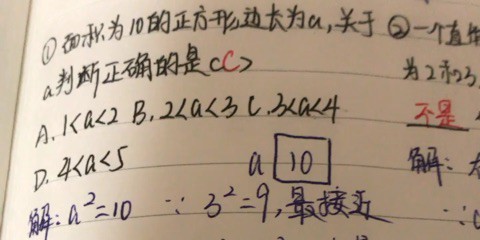 ①面积为10的正方形,边长为a,关于
a判断正确的是<C>
A.1<a<2 B.2<a<3 C.3<a<4
D.4<a<5
a 10
解:a²=10 ∵ 3²=9,最接近
②一个直
为2和3,
不是
解:
∵